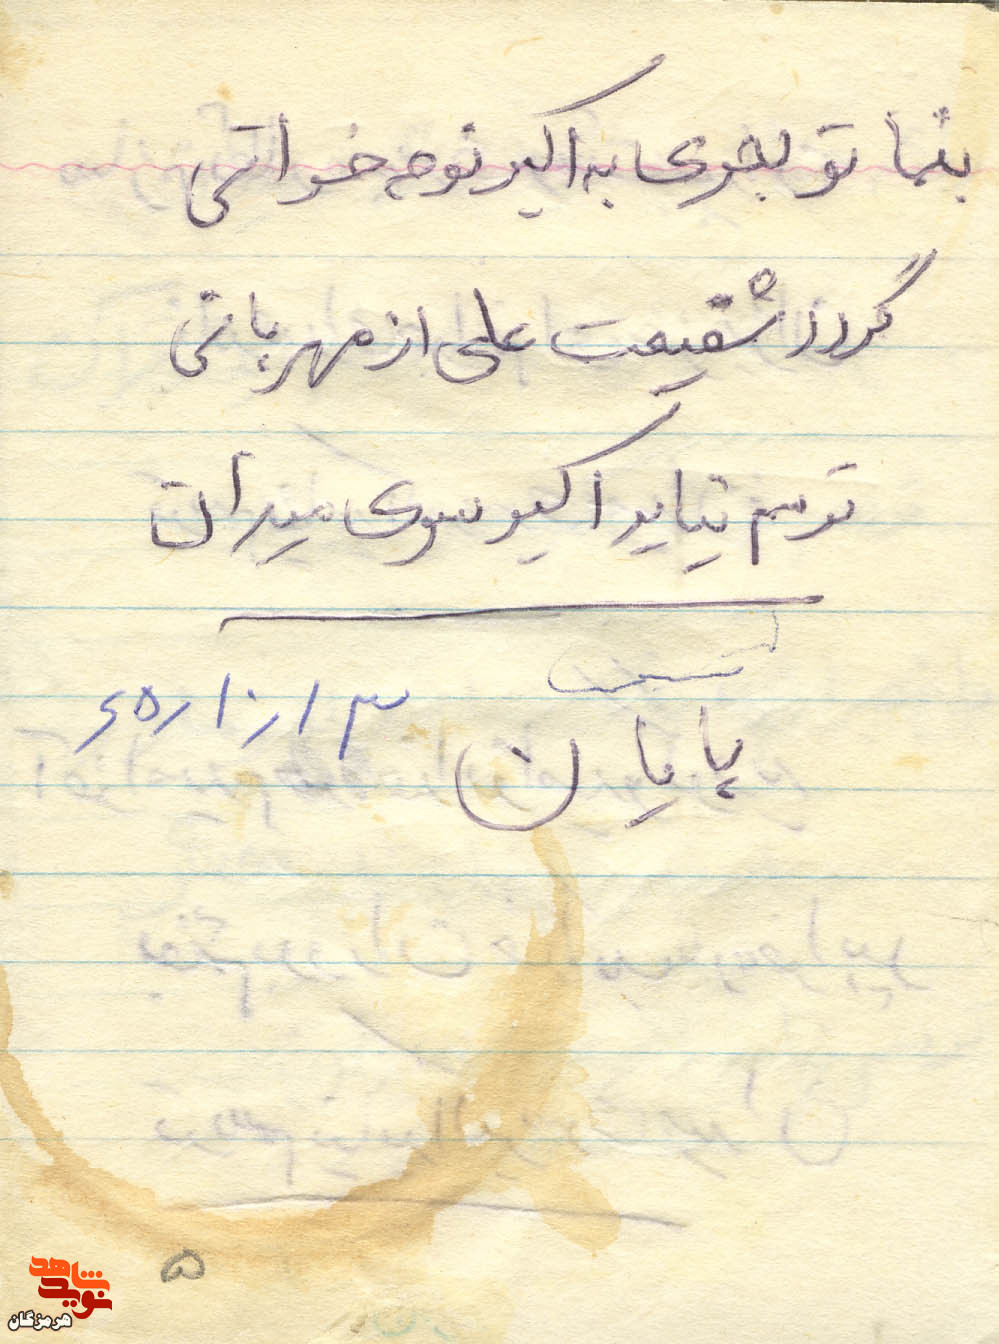 بنما تو بجوی به اکبر نوحه خوانی
گردد شفیعت علی از مهربانی
ترسم نیاید اکبر سوی میدان
پایان
۵
نوید شاهد
هرمزگان